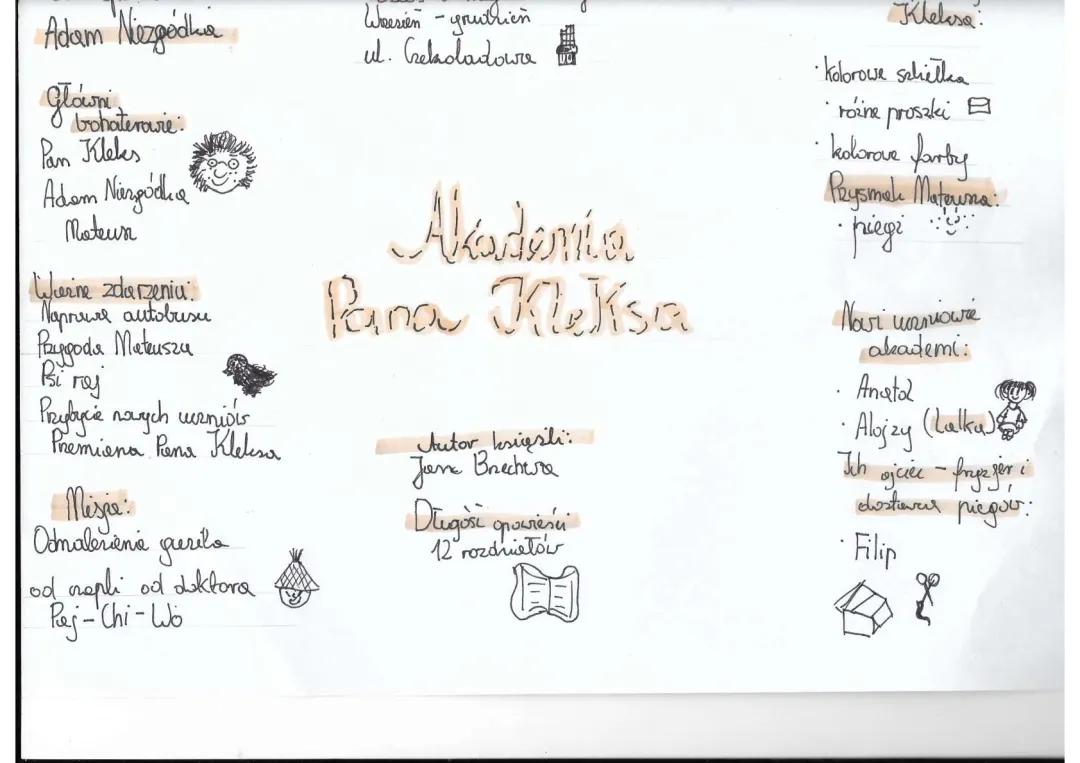 Adam Niezgódka
Główni
bohaterowie:
Pan Kleks
Adam Niezgódka
Mateusz
Ważne zdarzenia:
Naprawa autobusu
Przygoda Mateusza
Psi raj
Przybycie nowych uczniów
Przemiana Pana Kleksa
Misja:
Odnalezienie guzika
od czapki od doktora
Paj-Chi-Wo
Wrzesień - grudzień
ul. Czekoladowa
Akademia
Pana Kleksa
Autor książki:
Jan Brzechwa
Długość opowieści
12 rozdziałów
Kleksa:
· kolorowe szkiełka
· różne proszki
· kolorowe farby
Przysmak Mateusza:
· piegi
Nowi uczniowie
akademi:
· Anatol
· Alojzy (lalka)
Ich ojciec - fryzjer i
dostawca piegów:
· Filip